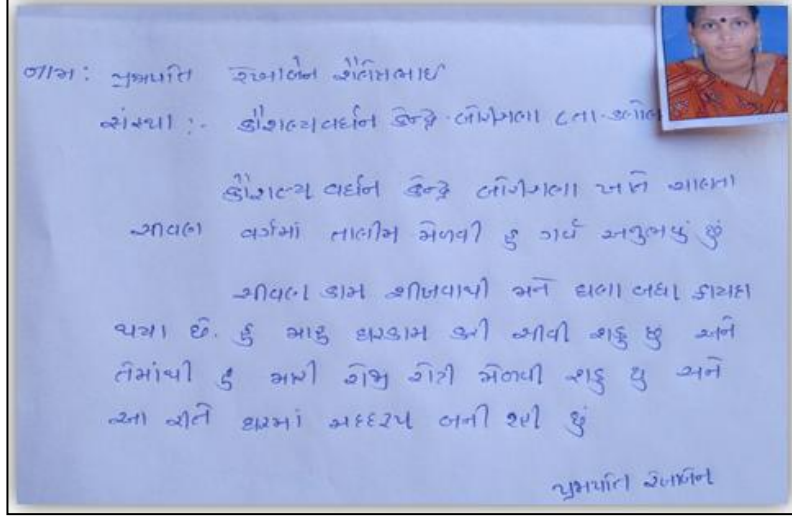 નામ: પ્રજાપતિ રેખાબેન શૈલેષભાઈ
સંસ્થા :- કૌશલ્યવર્ધન કેન્દ્ર
કૌશલ્ય વર્ધન કેન્દ્ર ખાતે ચાલતા
સીવણ વર્ગમાં તાલીમ મેળવી હુ ગર્વ અનુભવું છું
સીવણ કામ શીખવાથી મને ઘણા બધા ફાયદા
થયા છે. હું મારુ ઘરકામ કરી સીવી શકુ છુ અને
તેમાંથી હું મારી રોજી રોટી મેળવી શકુ છુ અને
આ રીતે ઘરમાં મદદરૂપ બની રહી છું
પ્રજાપતિ રેખાબેન